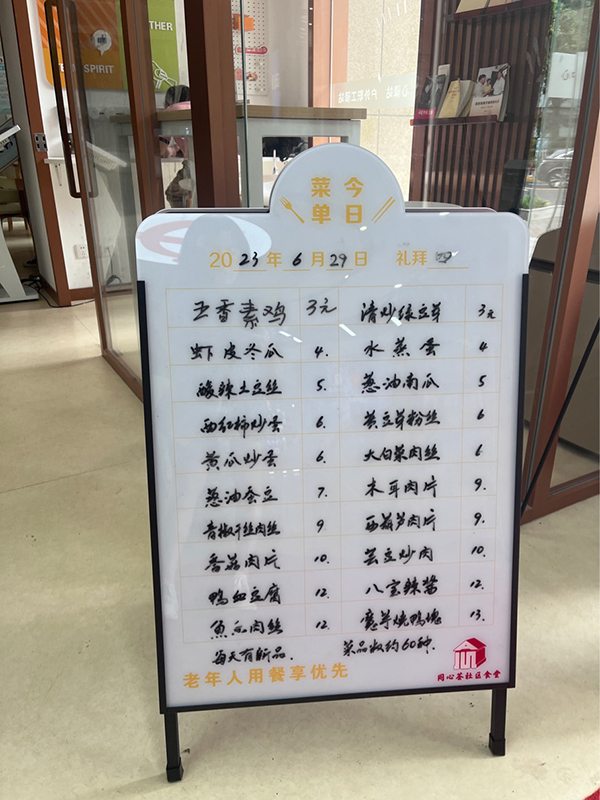 THER
TEAM SPIRIT
户外职工驿站
今日菜单
2023年6月29日 礼拜四
五香素鸡 3元 清炒绿豆芽 3元
虾皮冬瓜 4. 水蒸蛋 4
酸辣土豆丝 5. 葱油南瓜 5
西红柿炒蛋 6. 黄豆芽粉丝 6
黄瓜炒蛋 6. 大白菜肉丝 6
葱油蚕豆 7. 木耳肉片 9.
青椒干丝肉丝 9 西葫芦肉片 9.
香菇肉片 10. 芸豆炒肉 10.
鸭血豆腐 12. 八宝辣酱 12.
鱼香肉丝 12. 魔芋烧鸭块 13.
每天有新品. 菜品数约60种.
老年人用餐享优先
同心荟社区食堂